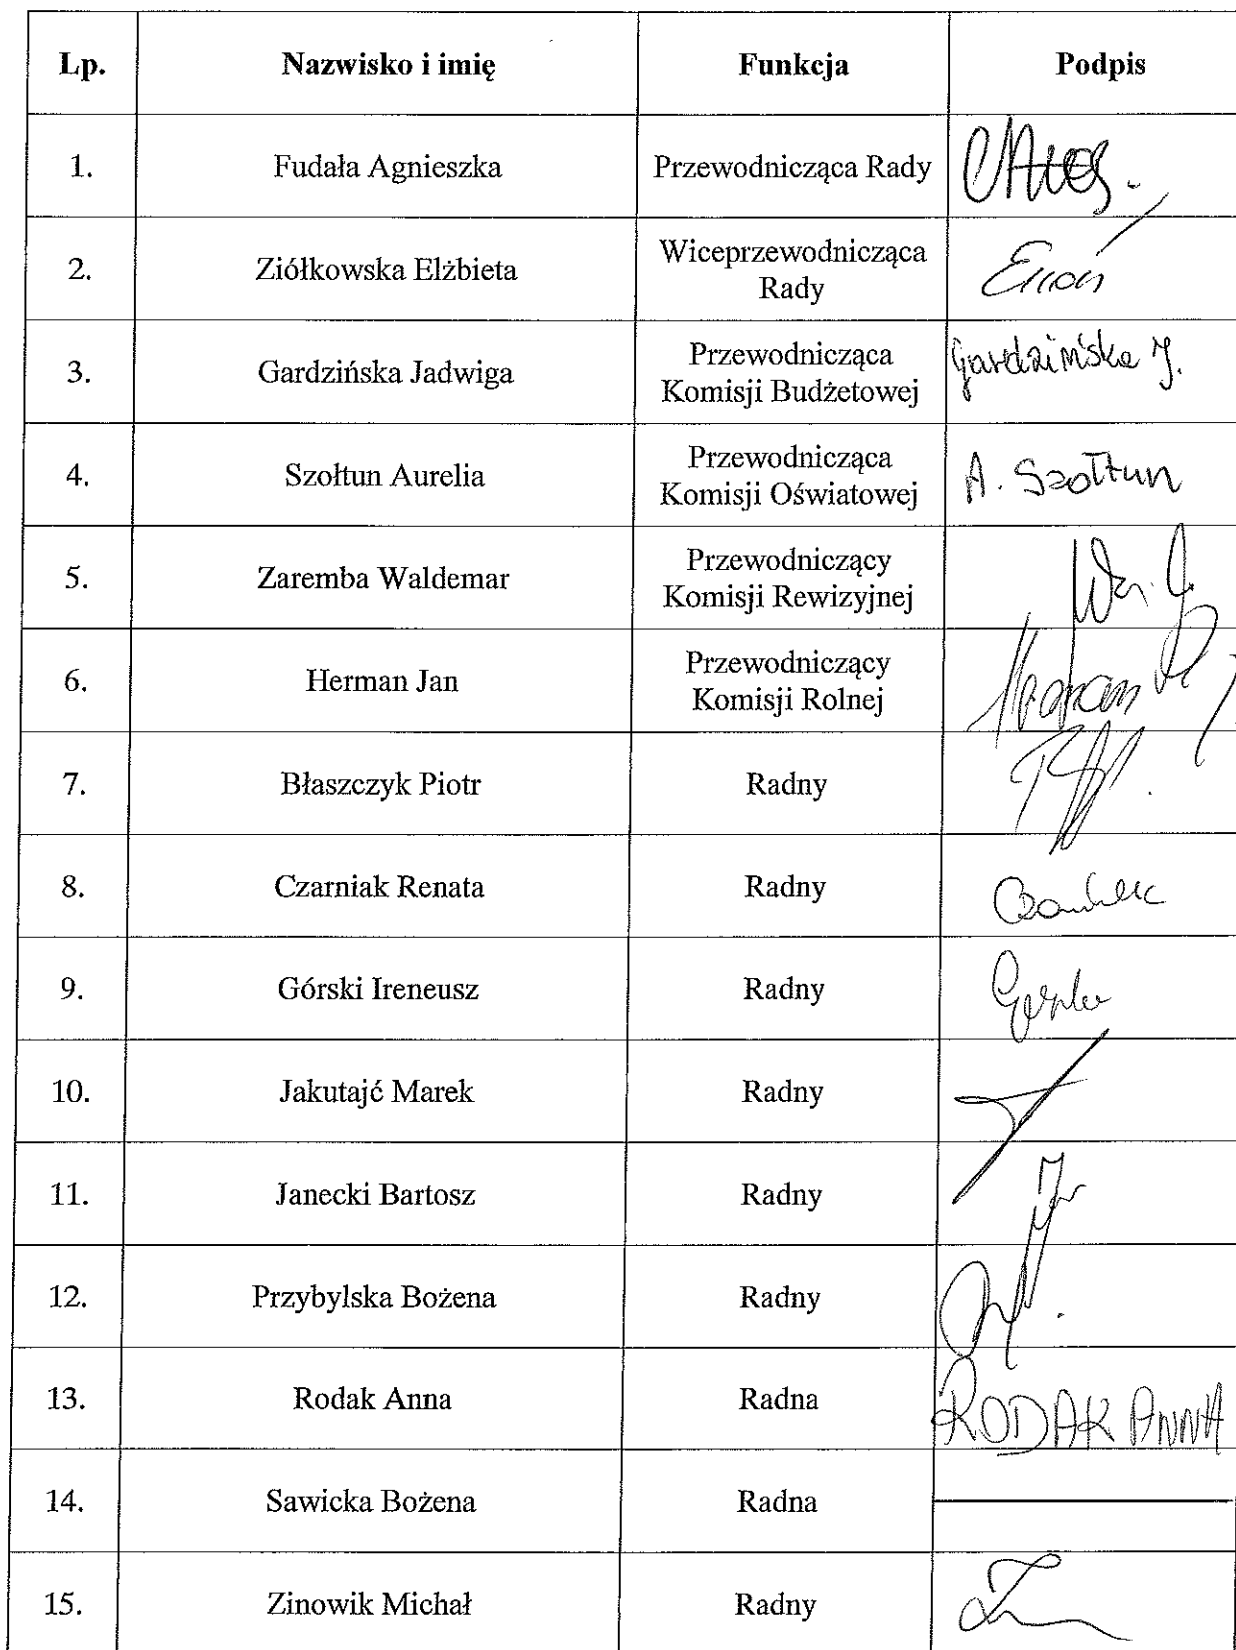 Lp. Nazwisko i imię Funkcja Podpis
1. Fudała Agnieszka Przewodnicząca Rady
2. Ziółkowska Elżbieta Wiceprzewodnicząca
Rady
3. Gardzińska Jadwiga Przewodnicząca
Komisji Budżetowej Gardzińska J.
4. Szołtun Aurelia Przewodnicząca
Komisji Oświatowej A. Szołtun
5. Zaremba Waldemar Przewodniczący
Komisji Rewizyjnej
6. Herman Jan Przewodniczący
Komisji Rolnej
7. Błaszczyk Piotr Radny
8. Czarniak Renata Radny
9. Górski Ireneusz Radny
10. Jakutajć Marek Radny
11. Janecki Bartosz Radny
12. Przybylska Bożena Radny
13. Rodak Anna Radna RODAK ANNA
14. Sawicka Bożena Radna
15. Zinowik Michał Radny